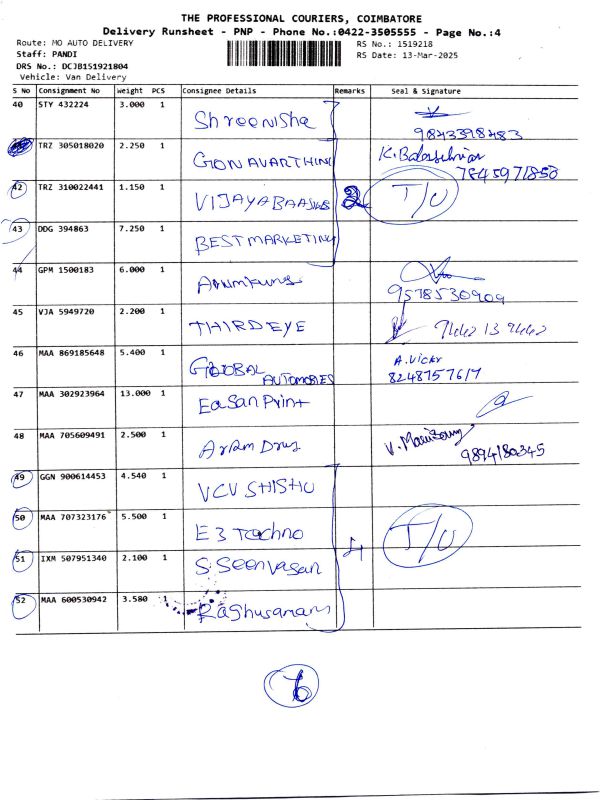 THE PROFESSIONAL COURIERS, COIMBATORE
Delivery Runsheet - PNP - Phone No.:0422-3505555 - Page No.:4
Route: MO AUTO DELIVERY
RS No.: 1519218
Staff: PANDI
RS Date: 13-Mar-2025
DRS No.: DCJB151921804
Vehicle: Van Delivery
S No Consignment No Weight PCS Consignee Details Remarks Seal & Signature
40 STY 432224 3.000 1 Shreenisha
9843398483
TRZ 305018020 2.250 1 GONAVARTHINI
7845971850
42 TRZ 310022441 1.150 1 T/U
43 DDG 394863 7.250 1 BEST MARKETING
44 GPM 1500183 6.000 1
9578530909
45 VJA 5949720 2.200 1 THIRD EYE
46 MAA 869185648 5.400 1 GLOBAL AUTOMOBIES A.Vicky
8248757617
47 MAA 302923964 13.000 1 Easan Print
48 MAA 705609491 2.500 1
9894180345
49 GGN 900614453 4.540 1 VCV SHISHU
50 MAA 707323176 5.500 1 E3 Techno T/U
51 IXM 507951340 2.100 1 S. Seenvasan
52 MAA 600530942 3.580 1
6